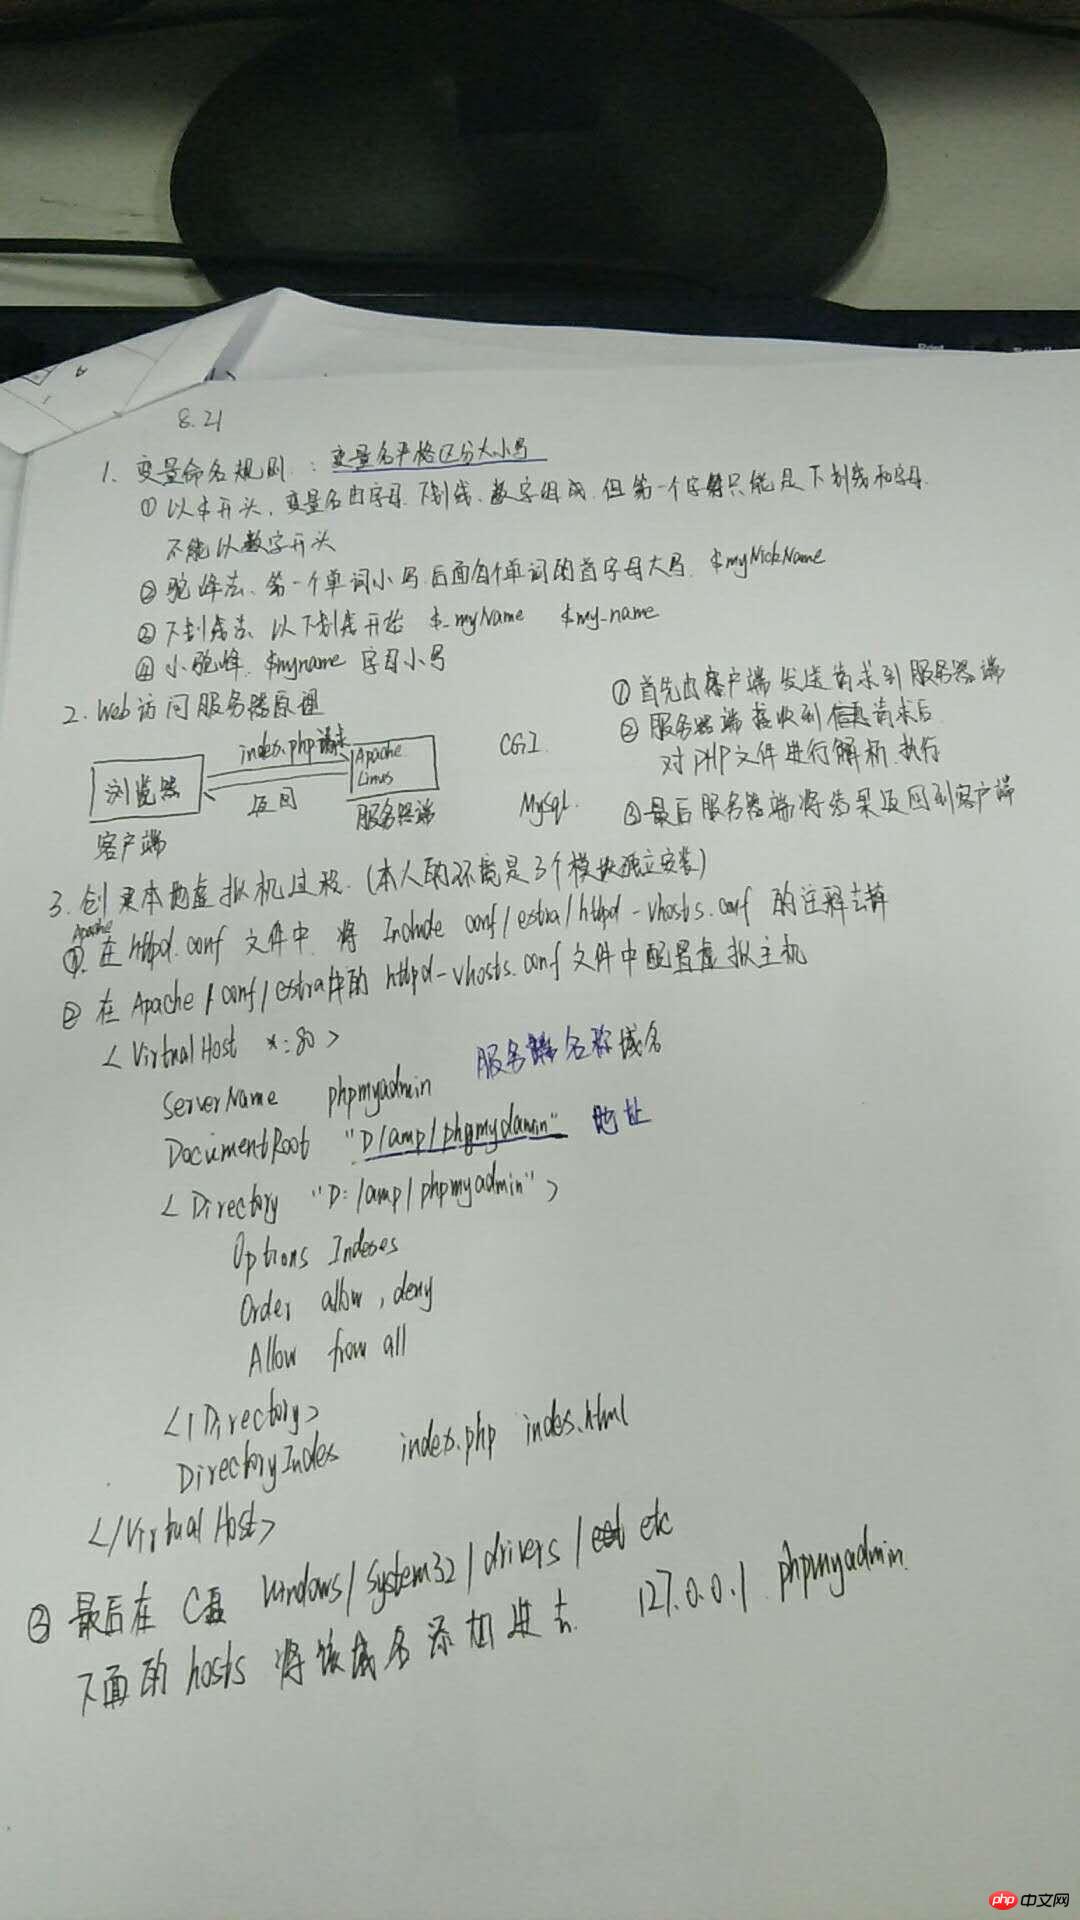 8.21
1. 变量命名规则:变量名严格区分大小写
① 以$开头,变量名由字母、下划线、数字组成,但第一个字符只能是下划线和字母
不能以数字开头
② 驼峰法、第一个单词小写 后面每个单词的首字母大写. $myNickName
③ 下划线法、以下划线开始 $_myName $my_name
④ 小驼峰. $myname 字母小写
2. Web访问服务器原理
index.php请求
浏览器
返回
Apache
Linus
客户端
服务器端
CGI
MySql.
① 首先由客户端发送请求到服务器端
② 服务器端接收到信息请求后
对PHP文件进行解析、执行
③ 最后服务器端将结果返回到客户端
3. 创建本地虚拟机过程.(本人的环境是3个模块独立安装)
Apache
①. 在httpd.conf 文件中 将 Include conf/extra/httpd-vhosts.conf 的注释去掉
② 在 Apache/conf/extra中的 httpd-vhosts.conf文件中配置虚拟主机
<VirtualHost *:80>
ServerName phpmyadmin 服务器名称域名
DocumentRoot "D/amp/phpmydamin" 地址
<Directory "D:/amp/phpmyadmin">
Options Indexes
Order allow,deny
Allow from all
</Directory>
DirectoryIndex index.php index.html
</VirtualHost>
③ 最后在 C盘 windows/system32/drivers/ etc
下面的 hosts 将该域名添加进去. 127.0.0.1 phpmyadmin.
php 中文网